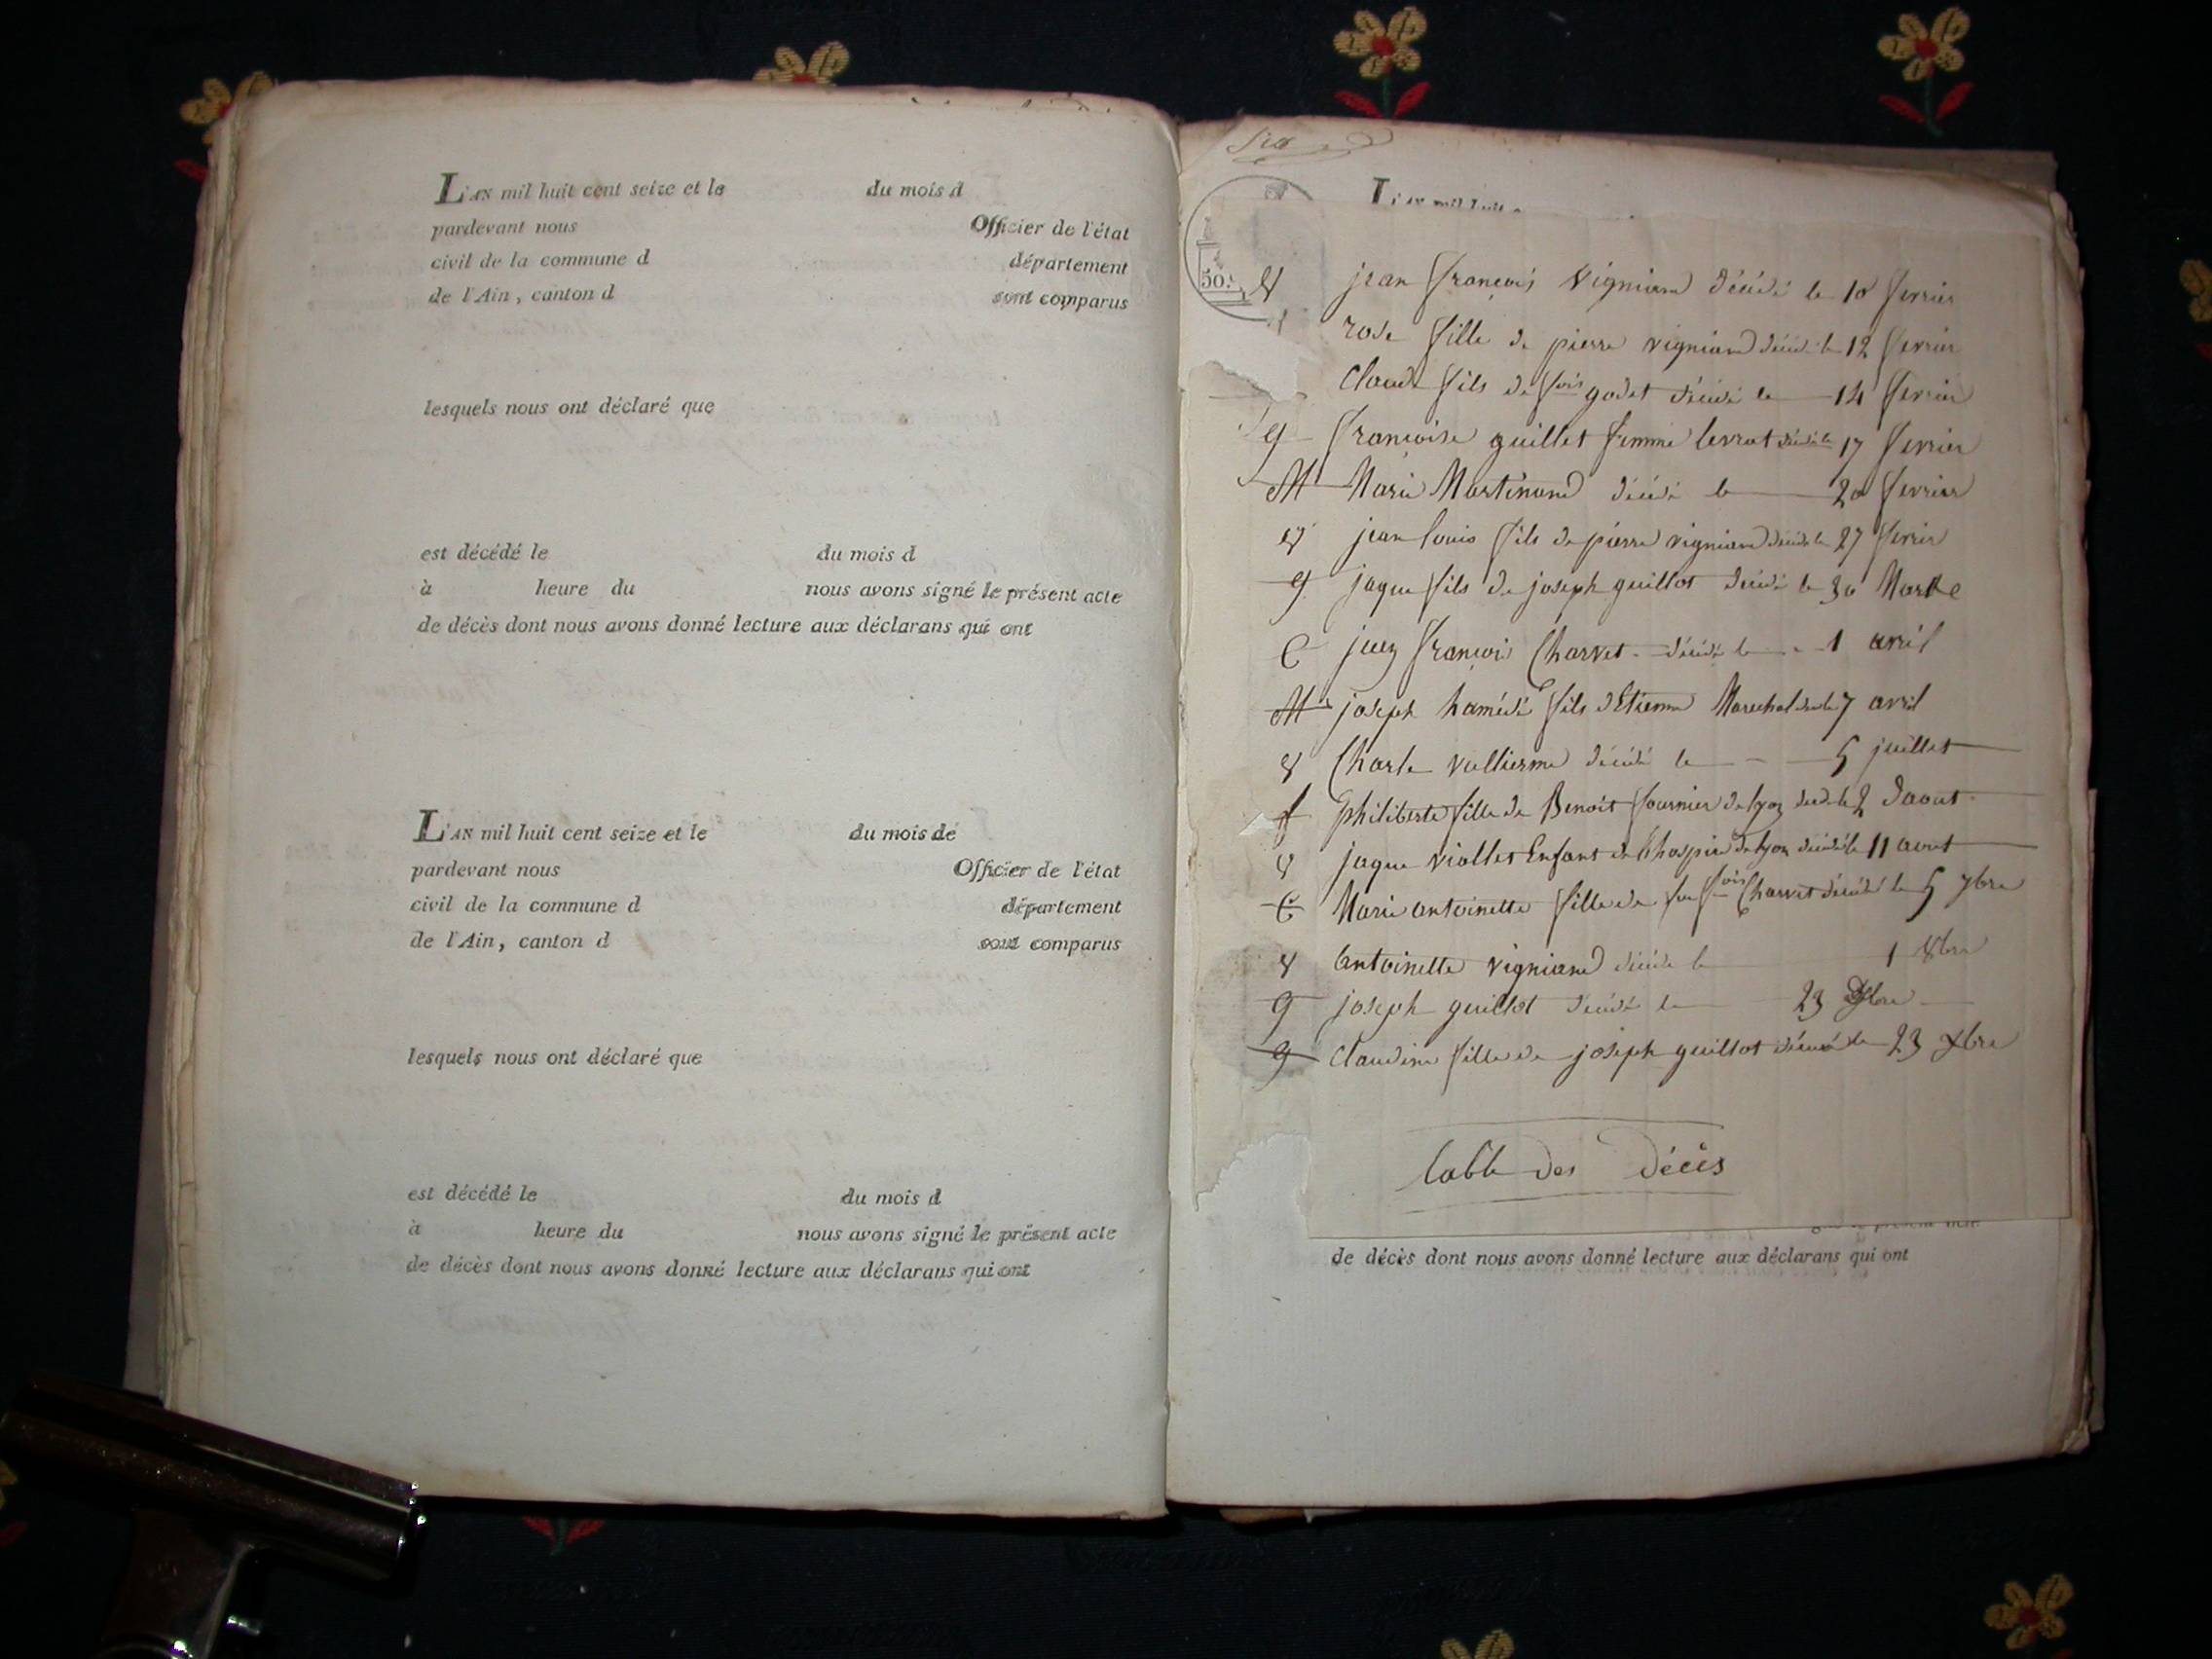 L'AN mil huit cent seize et le du mois d
pardevant nous Officier de l'état
civil de la commune d département
de l'Ain, canton d sont comparus
lesquels nous ont déclaré que
est décédé le du mois d
à heure du nous avons signé le présent acte
de décès dont nous avons donné lecture aux déclarans qui ont
L'AN mil huit cent seize et le du mois de
pardevant nous Officier de l'état
civil de la commune d département
de l'Ain, canton d sont comparus
lesquels nous ont déclaré que
est décédé le du mois d
à heure du nous avons signé le présent acte
de décès dont nous avons donné lecture aux déclarans qui ont
L'AN mil huit
50
V jean françois vigniand décédé le 10 fevrier
rose fille de pierre vigniand décédé le 12 fevrier
Claude fils de fois godet décédé le 14 fevrier
g françoise guillet femme levrat décédé le 17 fevrier
M Marie Martinand décédé le 20 fevrier
V jean louis fils de pierre vigniand décédé le 27 fevrier
g jaque fils de joseph guillot décédé le 30 Mars
C françois Charvet décédé le 1 avril
M joseph hamédé fils d'Etienne Marechal 7 avril
V Charle vullierme décédé le 5 juillet
f philiberte fille de Benoit fournier de lyon 2 d'aout
V jaque viollet Enfant de l'hospice de lyon décédé le 11 aout
C Marie antoinette fille de feu fois Charvet décédé le 5 7bre
V antoinette vigniand décédé le 1 8bre
g joseph guillot décédé le 23
g claudine fille de joseph guillot décédé le 23 xbre
table des Décès
de décès dont nous avons donné lecture aux déclarans qui ont